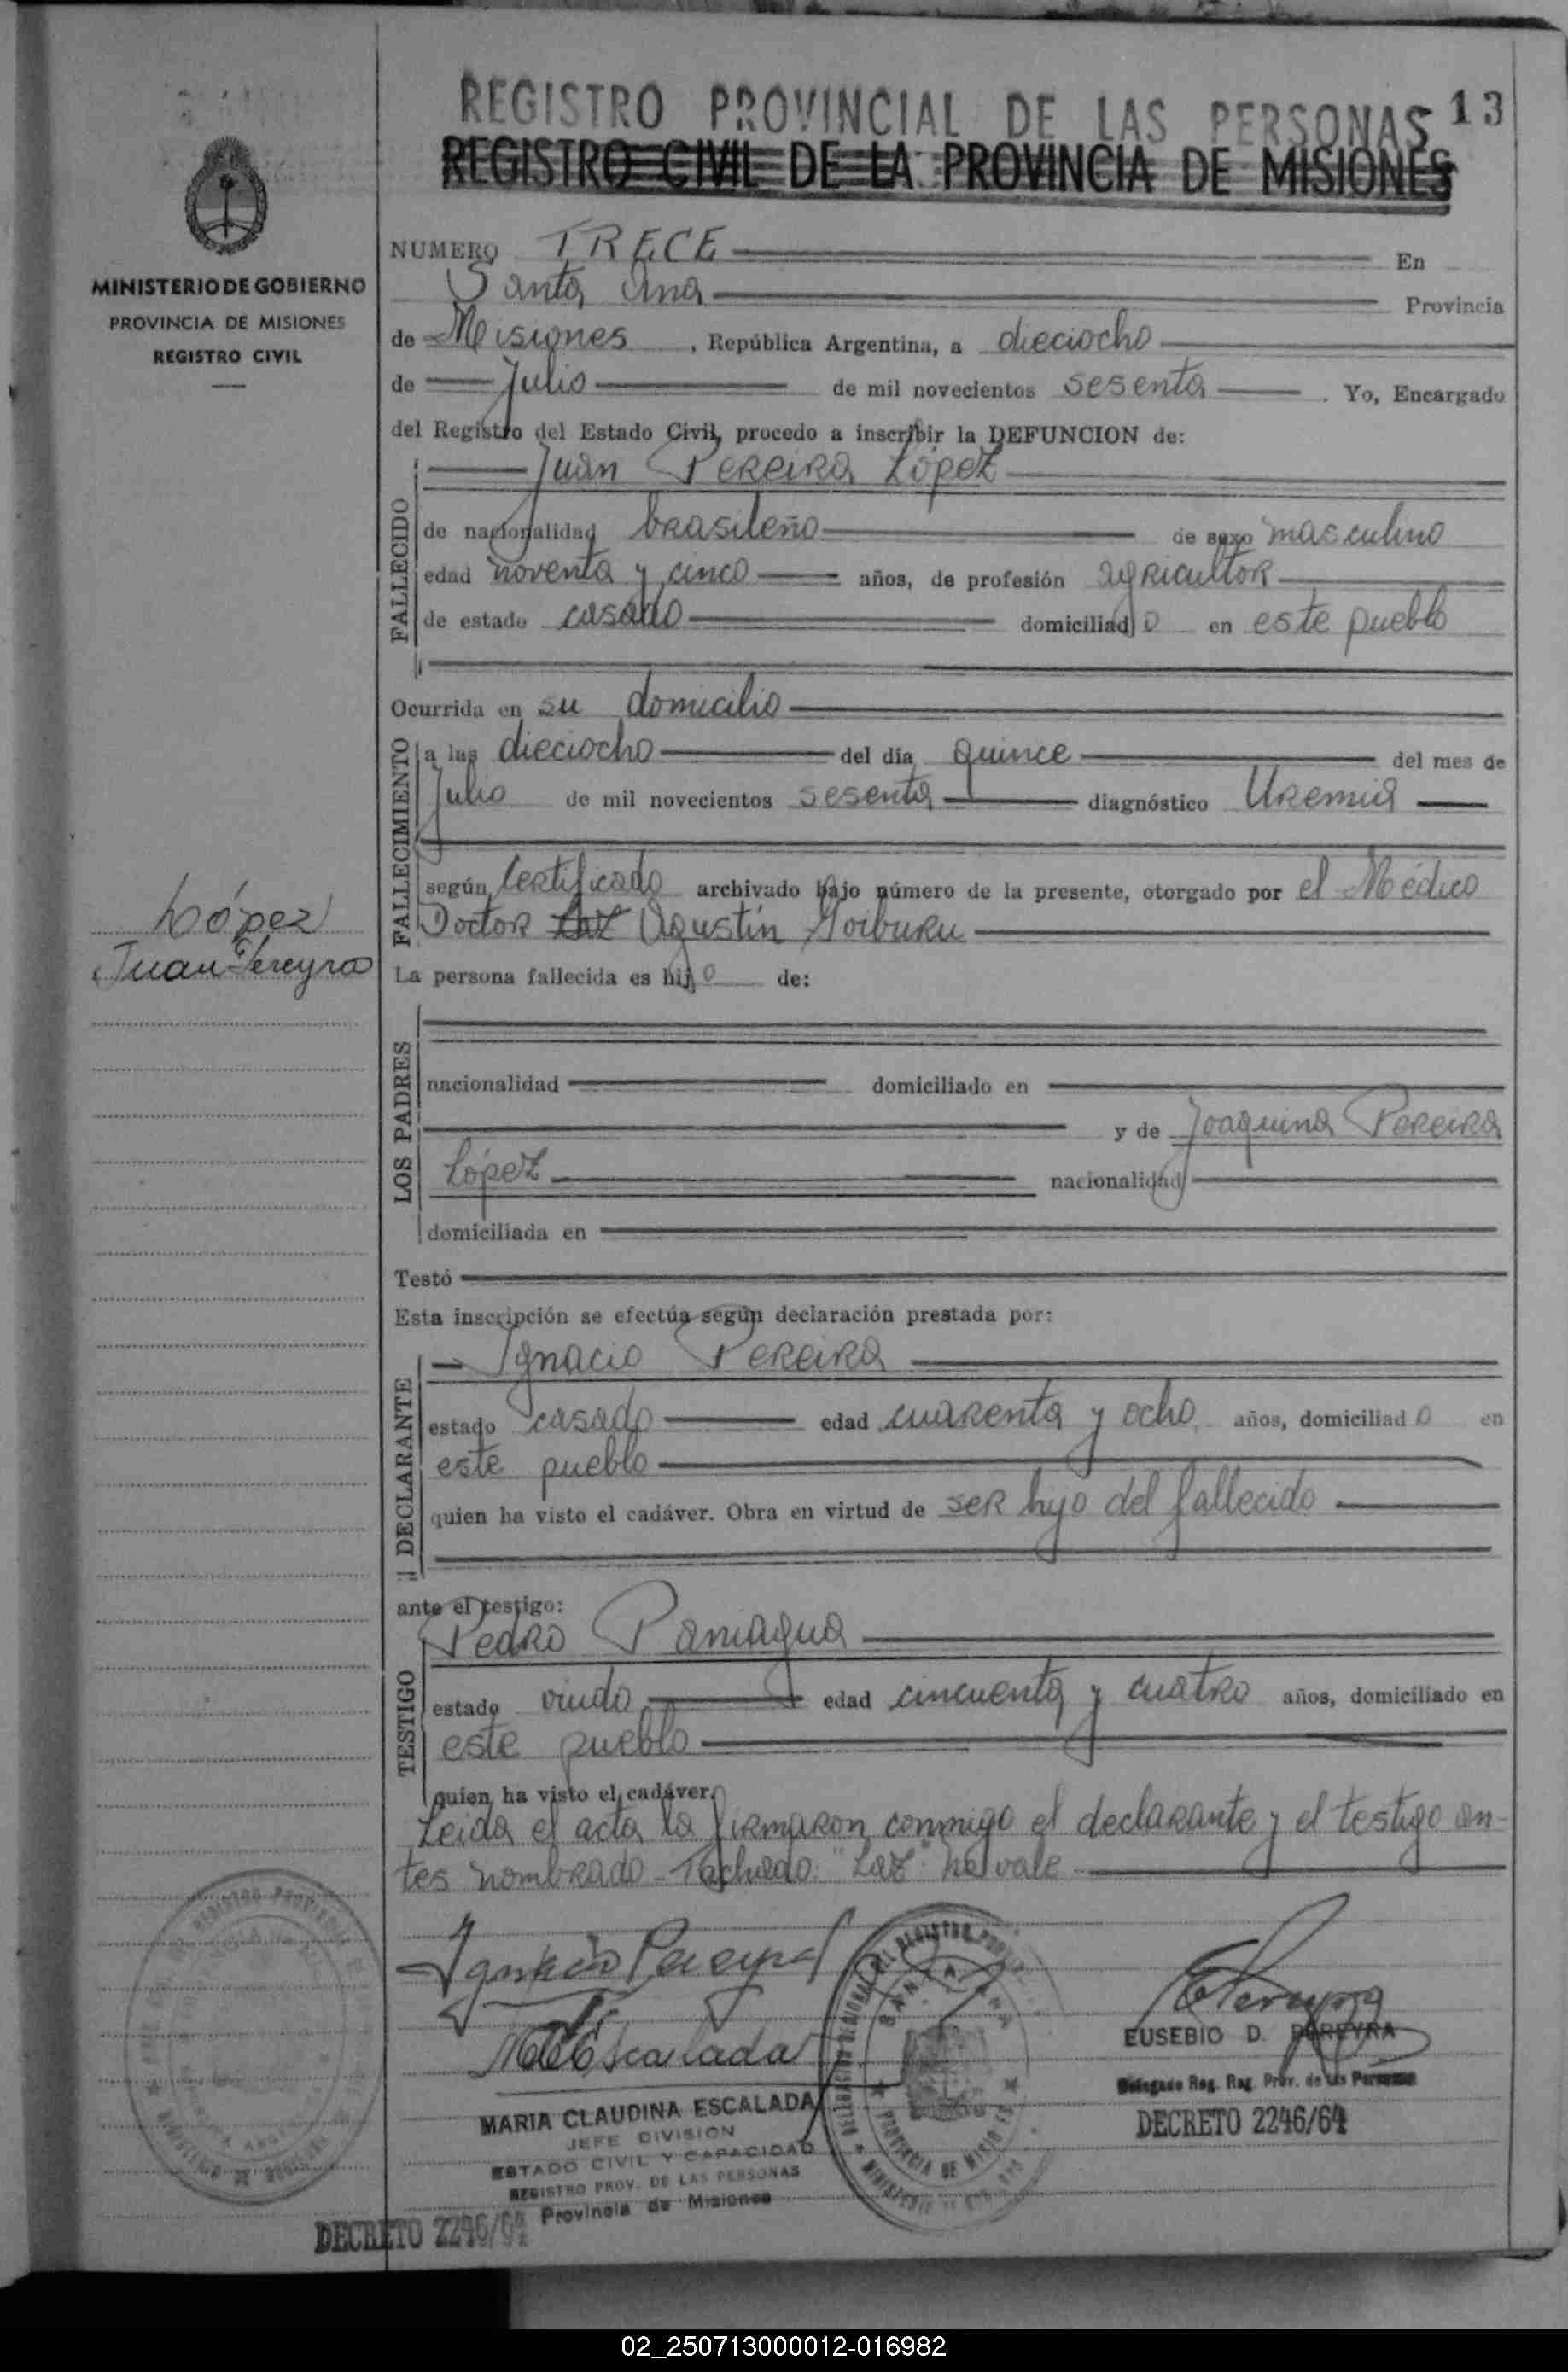 REGISTRO PROVINCIAL DE LAS PERSONAS 13
REGISTRO CIVIL DE LA PROVINCIA DE MISIONES
MINISTERIO DE GOBIERNO
PROVINCIA DE MISIONES
REGISTRO CIVIL
NUMERO TRECE En
Santa Ana Provincia
de Misiones, República Argentina, a dieciocho
de Julio de mil novecientos sesenta. Yo, Encargado
del Registro del Estado Civil, procedo a inscribir la DEFUNCION de:
FALLECIDO
Juan Pereira López
de nacionalidad brasileño de sexo masculino
edad noventa y cinco años, de profesión agricultor
de estado casado domiciliado en este pueblo
Ocurrida en su domicilio
FALLECIMIENTO
a las dieciocho del día quince del mes de
Julio de mil novecientos sesenta diagnóstico Uremia
según Certificado archivado bajo número de la presente, otorgado por el Médico
Doctor Laz Agustín Goiburu
López
Juan Pereyra
La persona fallecida es hijo de:
LOS PADRES
nacionalidad domiciliado en
y de Joaquina Pereira
López nacionalidad
domiciliada en
Testó
Esta inscripción se efectúa según declaración prestada por:
DECLARANTE
Ignacio Pereira
estado casado edad cuarenta y ocho años, domiciliado en
este pueblo
quien ha visto el cadáver. Obra en virtud de ser hijo del fallecido
ante el testigo:
TESTIGO
Pedro Paniagua
estado viudo edad cincuenta y cuatro años, domiciliado en
este pueblo
quien ha visto el cadáver.
Leida el acta la firmaron conmigo el declarante y el testigo an-
tes nombrado - Tachado: "Laz" no vale
Ignacio Pereyra
MCEscalada
EUSEBIO D. PEREYRA
Delegado Reg. Reg. Prov. de las Personas
DECRETO 2246/64
MARIA CLAUDINA ESCALADA
JEFE DIVISION
ESTADO CIVIL Y CAPACIDAD
REGISTRO PROV. DE LAS PERSONAS
Provincia de Misiones
DECRETO 2246/64
SANTA ANA
PROVINCIA DE MISIONES
02_250713000012-016982